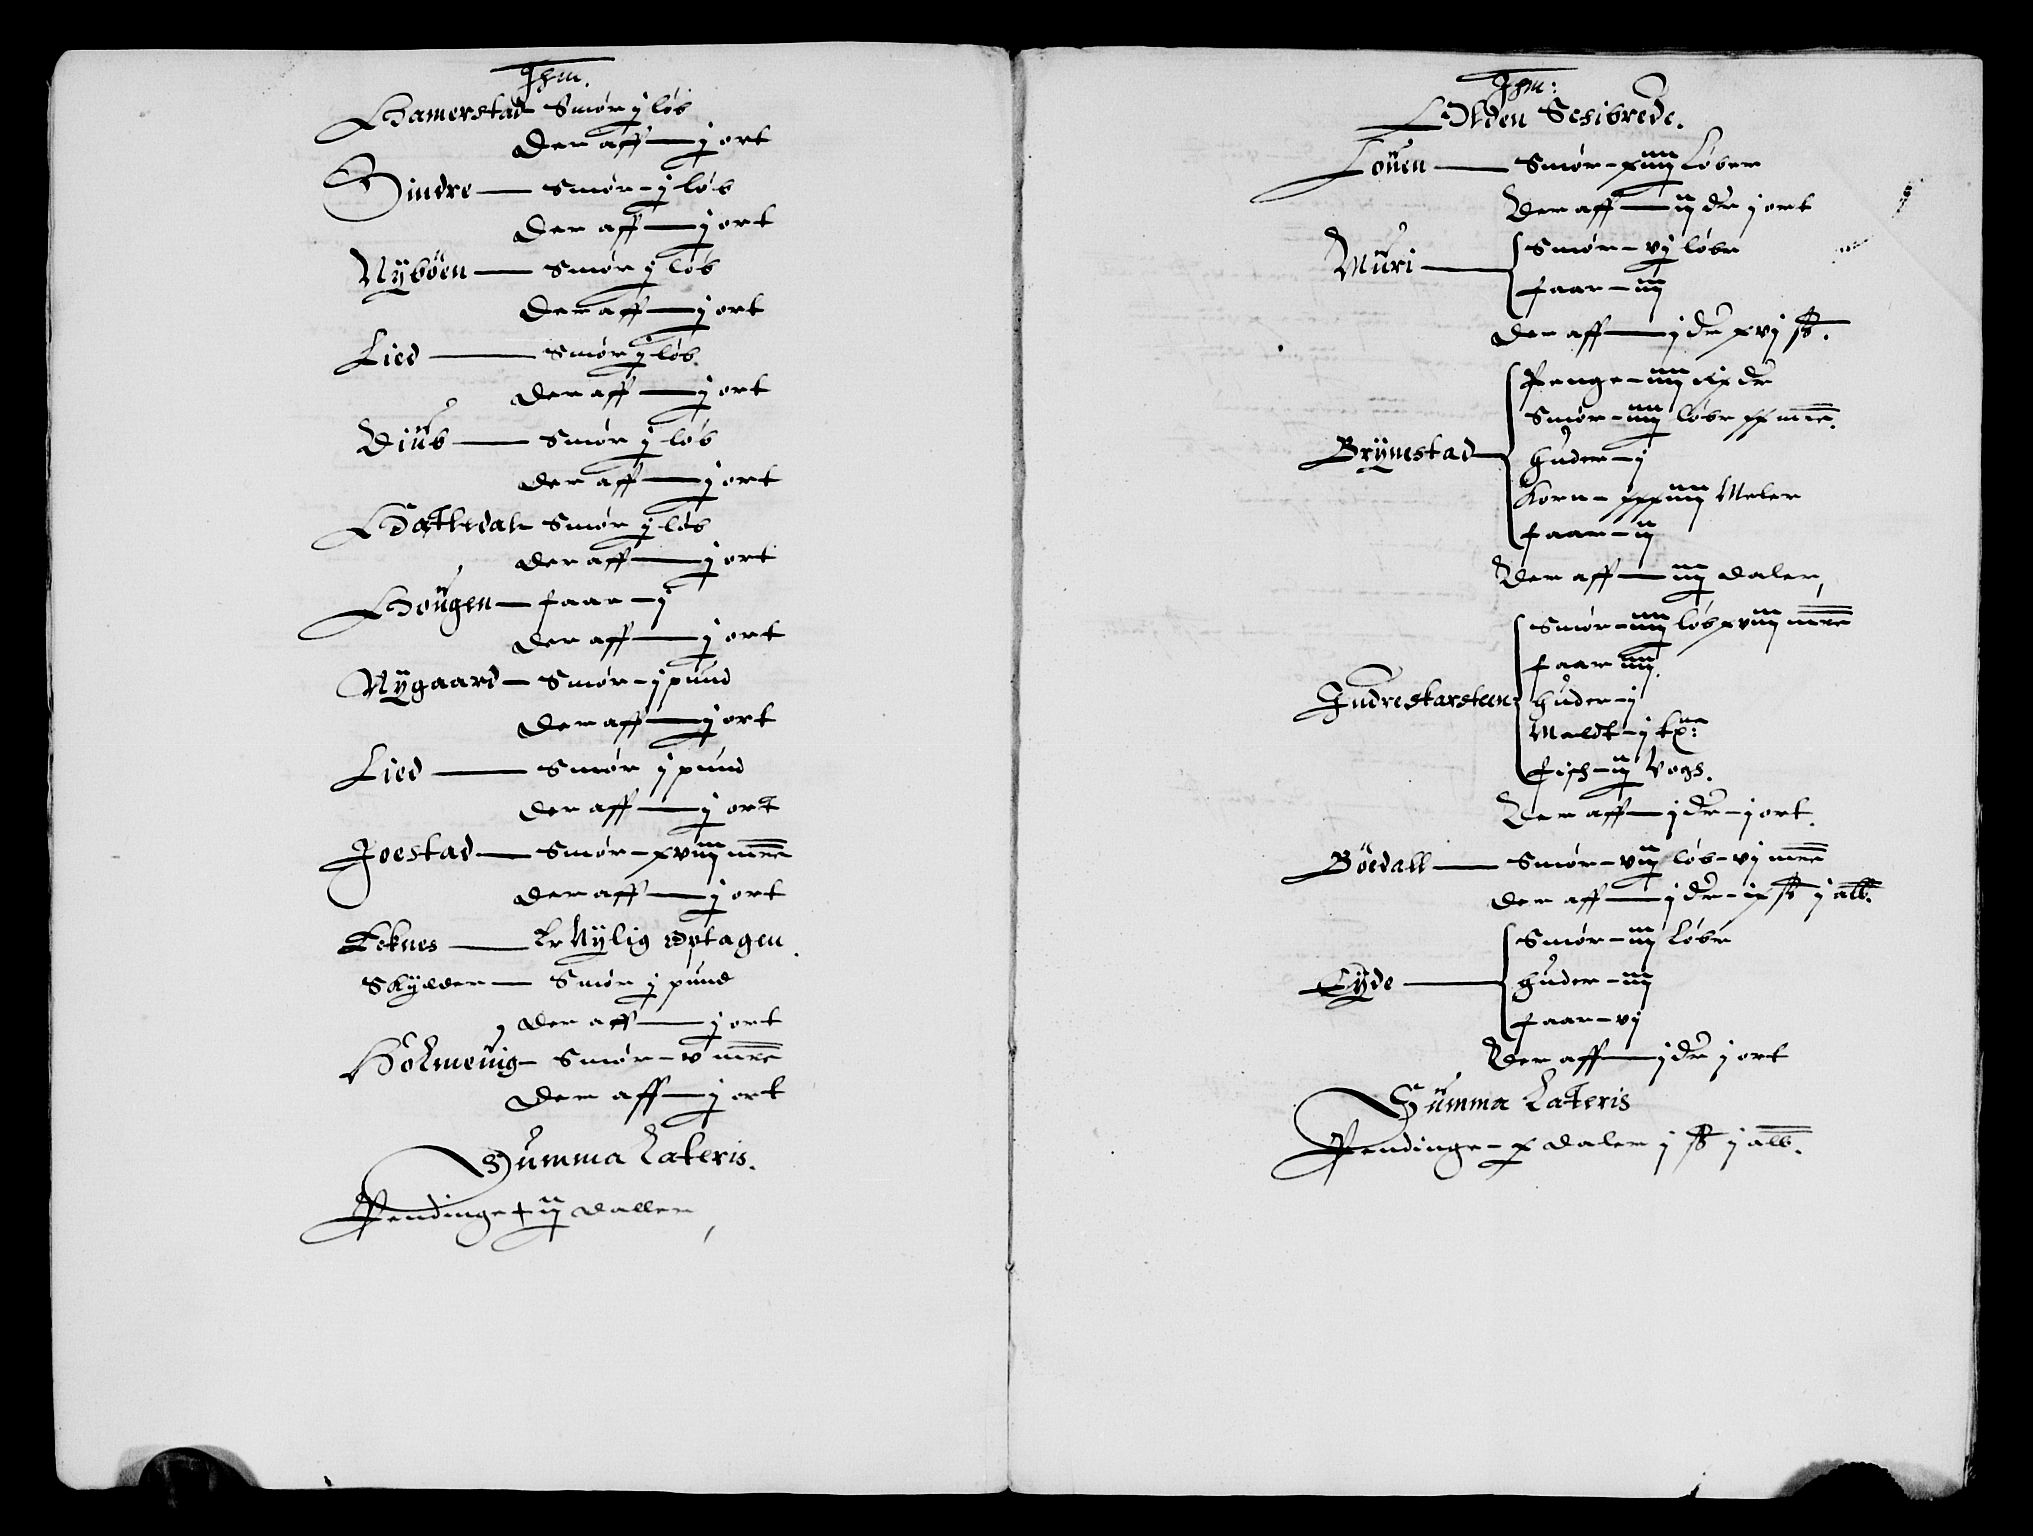 Jhm.
Hamerstad Smør j løb
Der aff — j ort
Sindre — Smør - j løb
Der aff — j ort
Nybøen — Smør j løb
Der aff — j ort
Lied — Smør j løb.
Der aff — j ort
Diüb — Smør j løb
Der aff — j ort
Hatledal Smør j løb
Der aff — j ort
Hougen — faar — j
Der aff — j ort
Nygaard — Smør - j pund
Der aff — j ort
Lied — Smør j pund
Der aff — j ort
Joestad — Smør - xviij mrc
Der aff — j ort
Teknes — Er Nylig optagen.
Skylder — Smør j pund
Der aff — j ort
Holmeuig - Smør - v mrc
Der aff — j ort
Summa Lateris.
Pendinge iij daller,
Jhm:
Olden Schibrede.
Louen — Smør - xiiij Løber
Der aff — iij dr j ort
Muri — Smør - vj løbr
faar - iiij
der aff — j dr xvj ß.
Brynestad — Penge - iiij dr
Smør - iiij løbr xx mrc.
huder - j
Korn - xxxiiij Meler
faar - ij
Der aff — iiij daler,
Indrestarsteen Smør - iiij løb xviij mrc
faar iiij.
huder - j
Maldt - j
fisch - ij Vogs.
Der aff — j dr - j ort.
Böedall — Smør - viij løb - vj mrc
der aff — j dr - ix ß j alb.
Eyde — Smør - iiij Løbr
huder - iiij
faar - vj
Der aff — j dr j ort
Summa Lateris
Pendinge - x daler j ß j alb.